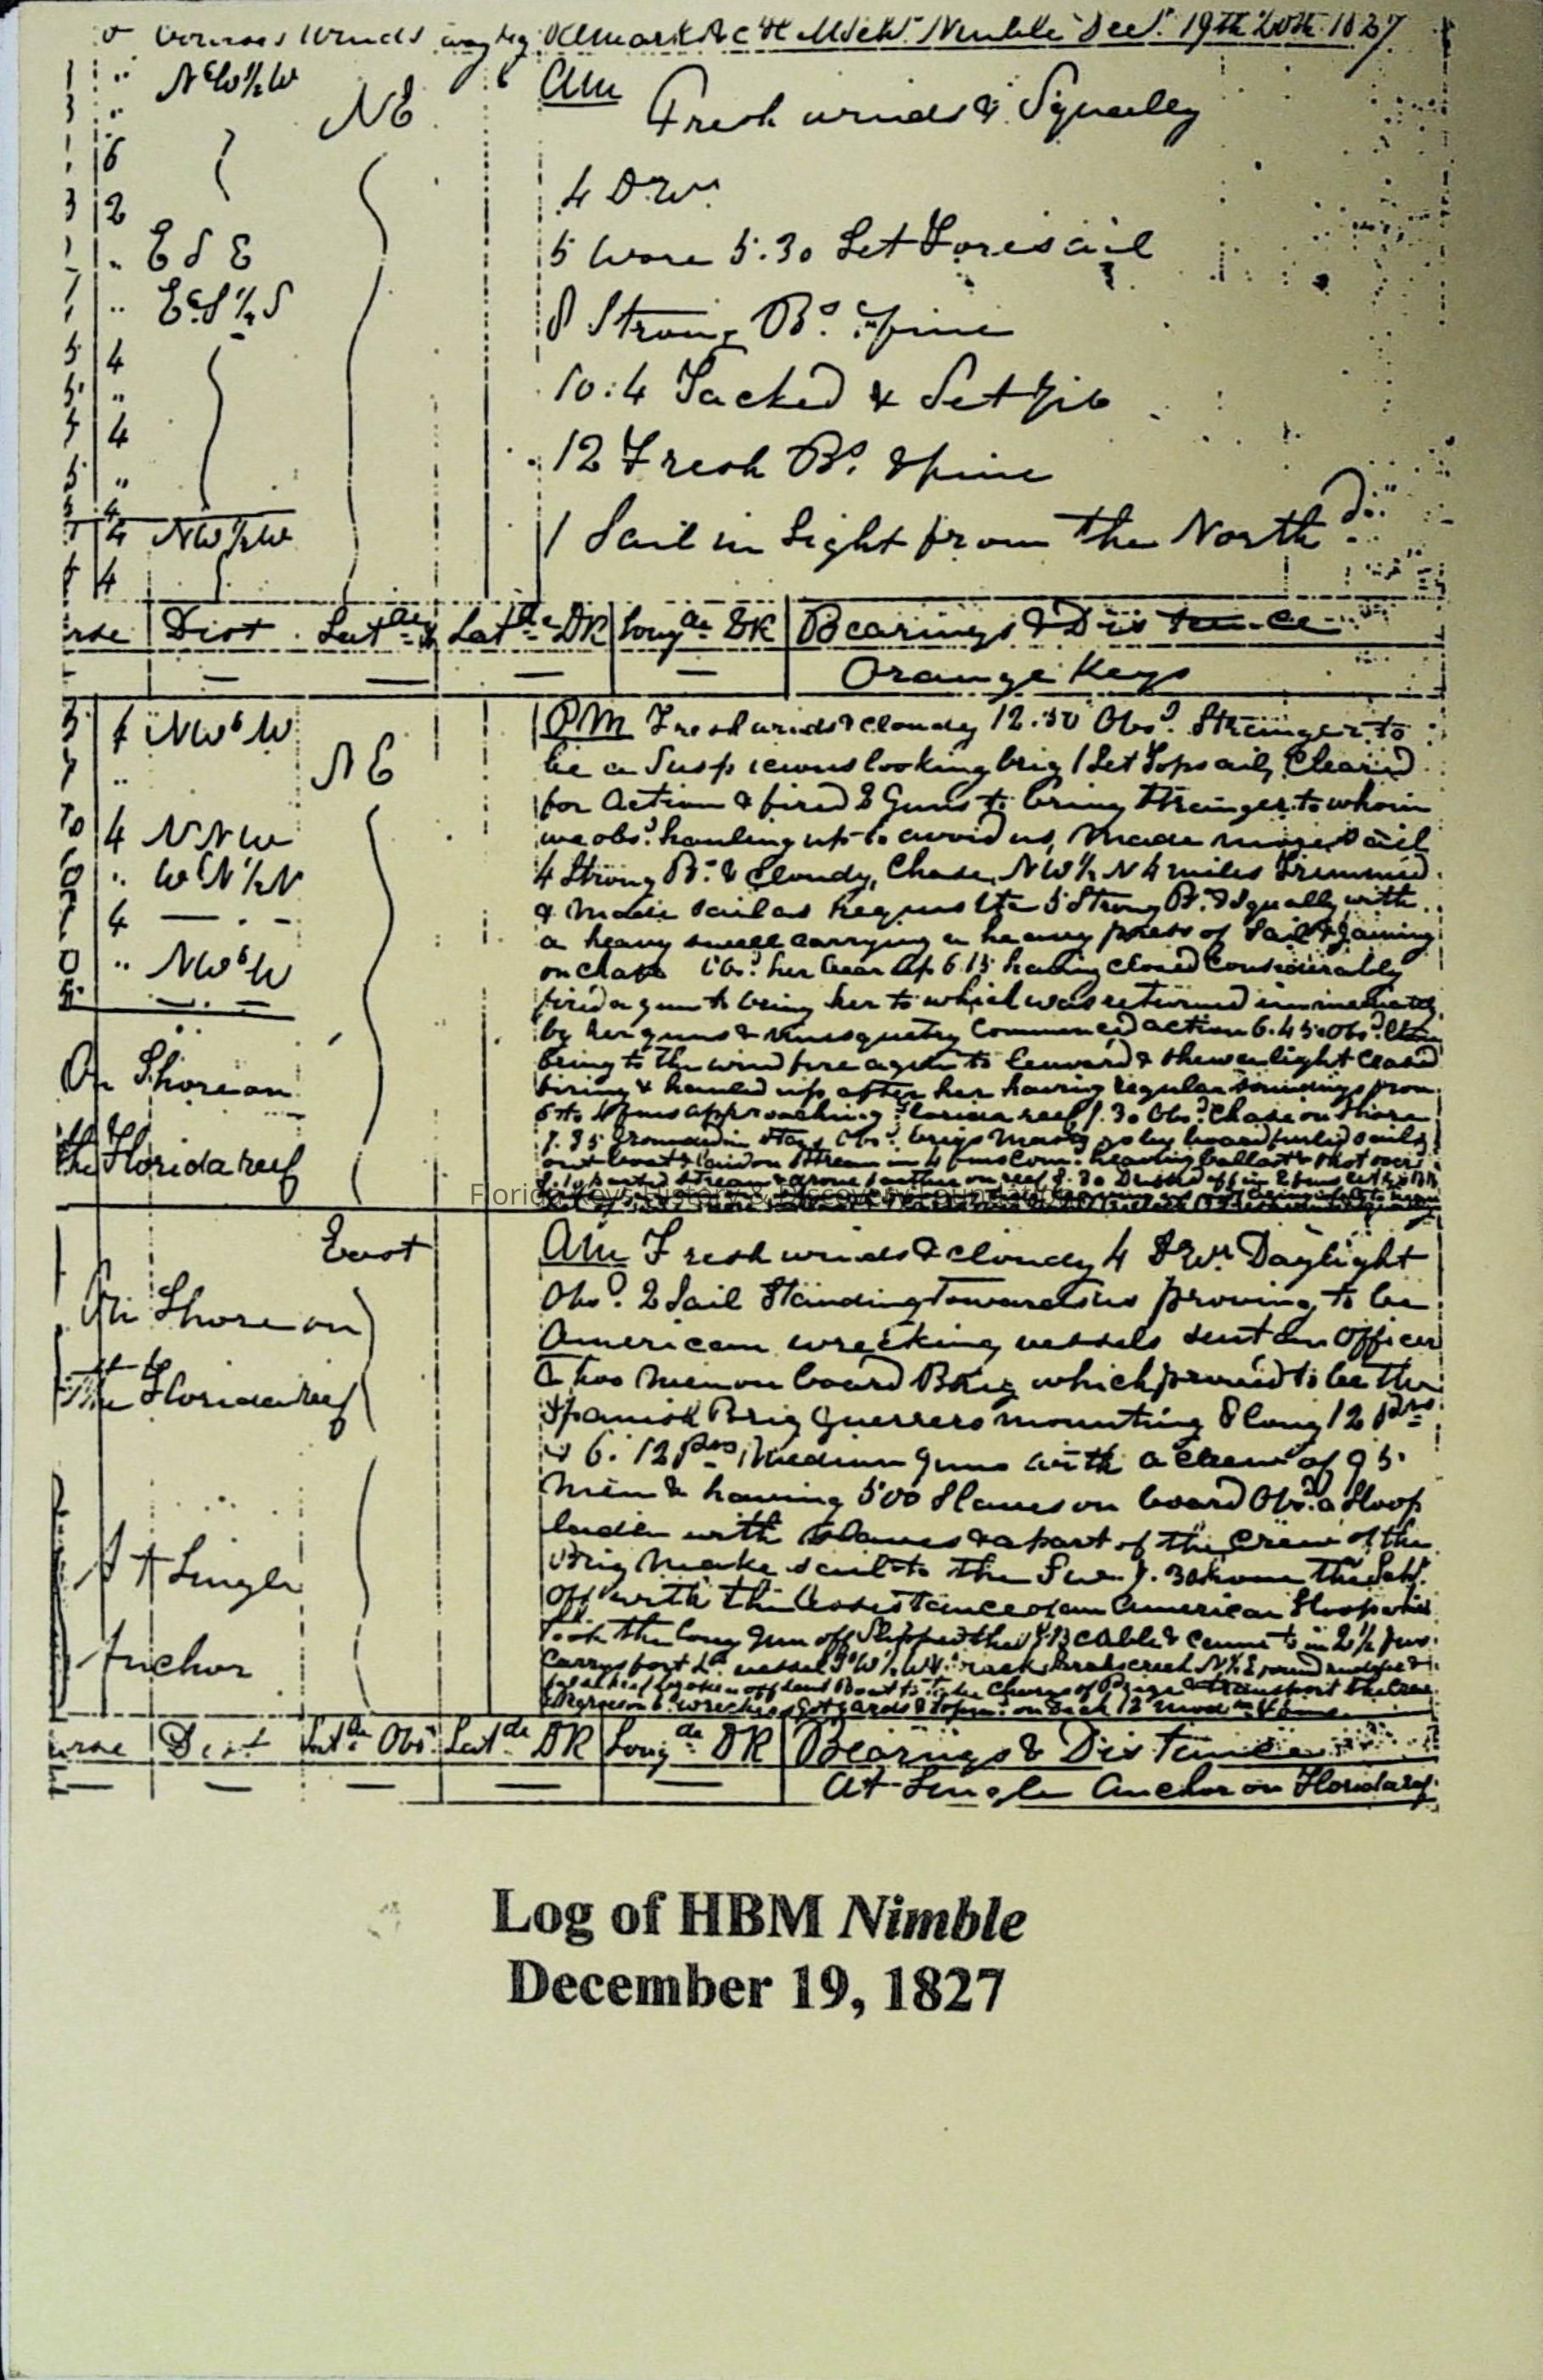 Courses Winds Remarks &c H M Schr. Nimble Decr. 19th 20th 1827
NbW½W NE
Am Fresh winds & Squally
6
4 D.Wr.
3 2
5 Wore 5.30 Set Foresail
E S E
EbS½S
8 Strong Bs. & fine
5 4
10:4 Tacked & Set Jib
5 4
12 Fresh Bs. & fine
4 NW½W
1 Sail in Sight from the North d
4
Dist Latde Latde DR Longde DR Bearings & Distance
Orange Keys
4 NWbW PM Fresh winds & cloudy 12.50 Obsd. Stranger to
NE be a Suspicious looking brig 1 Set Topsail, Cleared
for Action & fired 2 Guns to bring Stranger to whom
4 NNW we obsd. hauling up to avoid us, made more Sail
WbN½N 4 Strong Bs. & Cloudy, Chase NW½N 4 miles Trimmed
4 & made sail as requisite 5 Strong Bs. & Squally with
a heavy swell carrying a heavy press of Sail & Gaining
NWbW on chase Obsd. her bear up 6.15 having closed Considerably
fired a gun to bring her to which was returned immediately
by her guns & musquetry Commenced action 6.45 Obsd.
bring to the wind fire a gun to Leeward & shew a light Ceased
On Shore on firing & hauled up after her having regular soundings from
6 to 4 fms approaching Florida reef 7.30 Obsd. Chase on Shore
7.35 Grounded in Stays Obsd. brigs Masts go by board furled sails
the Florida reef out boats & laid on Stream in 4 fms Comd. heaving ballast & shot over
Florida Keys History & Discovery Foundation
East Am Fresh winds & cloudy 4 D.Wr. Daylight
On Shore on Obsd. 2 Sail Standing Towards us proving to be
American wrecking vessels sent an Officer
the Florida reef & two men on board Brig which proved to be the
Spanish Brig Guerrero mounting 8 long 12 prs
& 6. 12 prs Medium guns with a crew of 95
men & having 500 Slaves on board Obsd. a Sloop
laden with slaves & a part of the Crew of the
At Single Brig make sail to the SW. 9.30 hove the Schr.
off with the Assistance of an American Sloop who
Anchor took the long Gun off Slipped the Cable & came to in 2½ fms
Carrysfort Lt. vessel
Dist Latde Obsd Latde DR Longde DR Bearings & Distance
At Single Anchor on Florida reef
Log of HBM Nimble
December 19, 1827